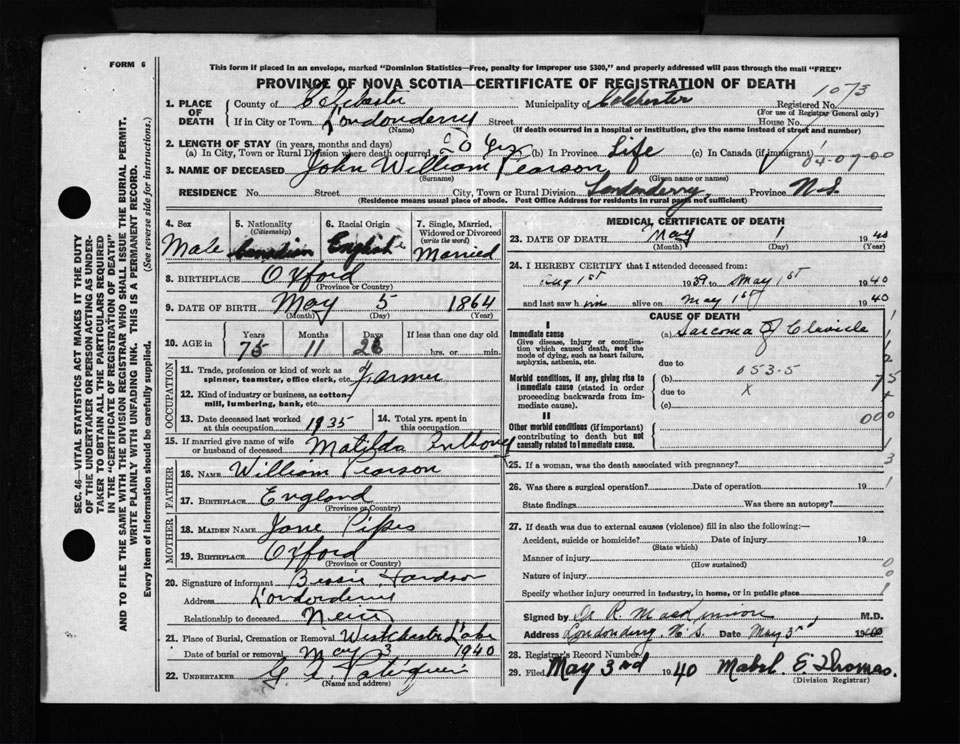 FORM 6
This form if placed in an envelope, marked "Dominion Statistics—Free, penalty for improper use $300," and properly addressed will pass through the mail "FREE"
PROVINCE OF NOVA SCOTIA—CERTIFICATE OF REGISTRATION OF DEATH
1073
1. PLACE OF DEATH County of Colchester Municipality of Colchester Registered No.
(For use of Registrar General only)
If in City or Town Londonderry Street House No.
(Name) (If death occurred in a hospital or institution, give the name instead of street and number)
2. LENGTH OF STAY (in years, months and days)
(a) In City, Town or Rural Division where death occurred Yrs (b) In Province Life (c) In Canada (if immigrant)
04-07-00
3. NAME OF DECEASED John William Pearson
(Surname) (Given name or names)
RESIDENCE No. Street City, Town or Rural Division Londonderry Province N.S.
(Residence means usual place of abode. Post Office Address for residents in rural parts not sufficient)
4. Sex Male
5. Nationality (Citizenship) Canadian
6. Racial Origin English
7. Single, Married, Widowed or Divorced (write the word) Married
8. BIRTHPLACE Oxford
(Province or Country)
9. DATE OF BIRTH May 5 1864
(Month) (Day) (Year)
10. AGE in Years Months Days If less than one day old
75 11 26 hrs. or min.
OCCUPATION
11. Trade, profession or kind of work as spinner, teamster, office clerk, etc. Farmer
12. Kind of industry or business, as cotton-mill, lumbering, bank, etc.
13. Date deceased last worked at this occupation 1935
14. Total yrs. spent in this occupation
15. If married give name of wife or husband of deceased Matilda
FATHER
16. NAME William Pearson
17. BIRTHPLACE England
(Province or Country)
MOTHER
18. MAIDEN NAME Jane Pipes
19. BIRTHPLACE Oxford
(Province or Country)
20. Signature of informant Bessie
Address Londonderry
Relationship to deceased
21. Place of Burial, Cremation or Removal Westchester
Date of burial or removal May 3 1940
22. UNDERTAKER
(Name and address)
MEDICAL CERTIFICATE OF DEATH
23. DATE OF DEATH May 1 1940
(Month) (Day) (Year)
24. I HEREBY CERTIFY that I attended deceased from:
Aug 1st 1939 to May 1st 1940
and last saw him alive on May 1st 1940
CAUSE OF DEATH
I
Immediate cause (a) Sarcoma of Clavicle
Give disease, injury or complication which caused death, not the mode of dying, such as heart failure, asphyxia, asthenia, etc.
due to
053.5
Morbid conditions, if any, giving rise to immediate cause (stated in order proceeding backwards from immediate cause). (b)
due to X
(c)
II
Other morbid conditions (if important) contributing to death but not causally related to immediate cause.
25. If a woman, was the death associated with pregnancy?
26. Was there a surgical operation? Date of operation 19
State findings Was there an autopsy?
27. If death was due to external causes (violence) fill in also the following:—
Accident, suicide or homicide? Date of injury 19
(State which)
Manner of injury
(How sustained)
Nature of injury
Specify whether injury occurred in industry, in home, or in public place
Signed by Dr R MacKinnon M.D.
Address Londonderry N.S. Date May 3rd 1940
28. Registrar's Record Number
29. Filed May 3nd 1940 Mabel E Thomas.
(Division Registrar)
SEC. 46—VITAL STATISTICS ACT MAKES IT THE DUTY
OF THE UNDERTAKER OR PERSON ACTING AS UNDER-
TAKER TO OBTAIN ALL THE PARTICULARS REQUIRED
IN THE "CERTIFICATE OF REGISTRATION OF DEATH"
AND TO FILE THE SAME WITH THE DIVISION REGISTRAR WHO SHALL ISSUE THE BURIAL PERMIT.
WRITE PLAINLY WITH UNFADING INK. THIS IS A PERMANENT RECORD.
Every item of information should be carefully supplied. (See reverse side for instructions.)